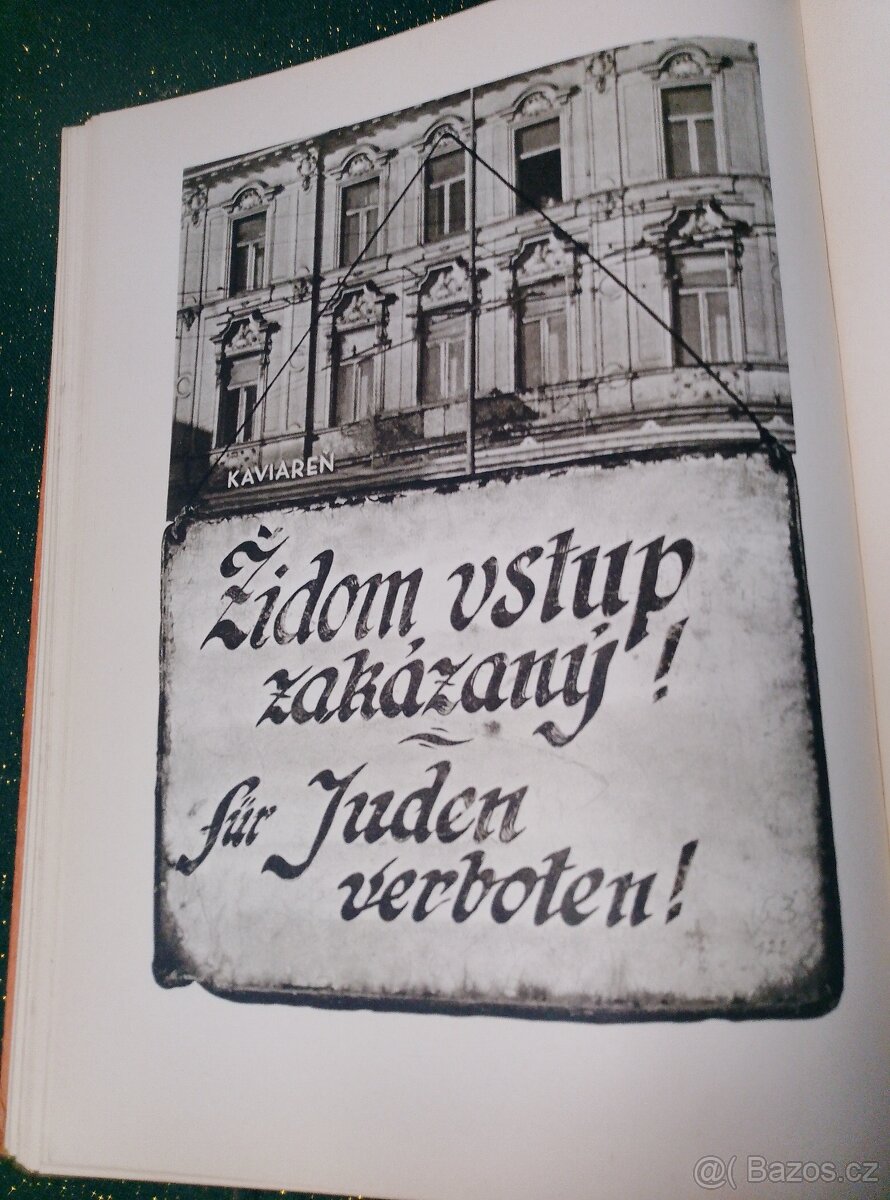 KAVIAREŇ
Židom vstup
zakázaný!
für Juden
verboten!
@( Bazos.cz